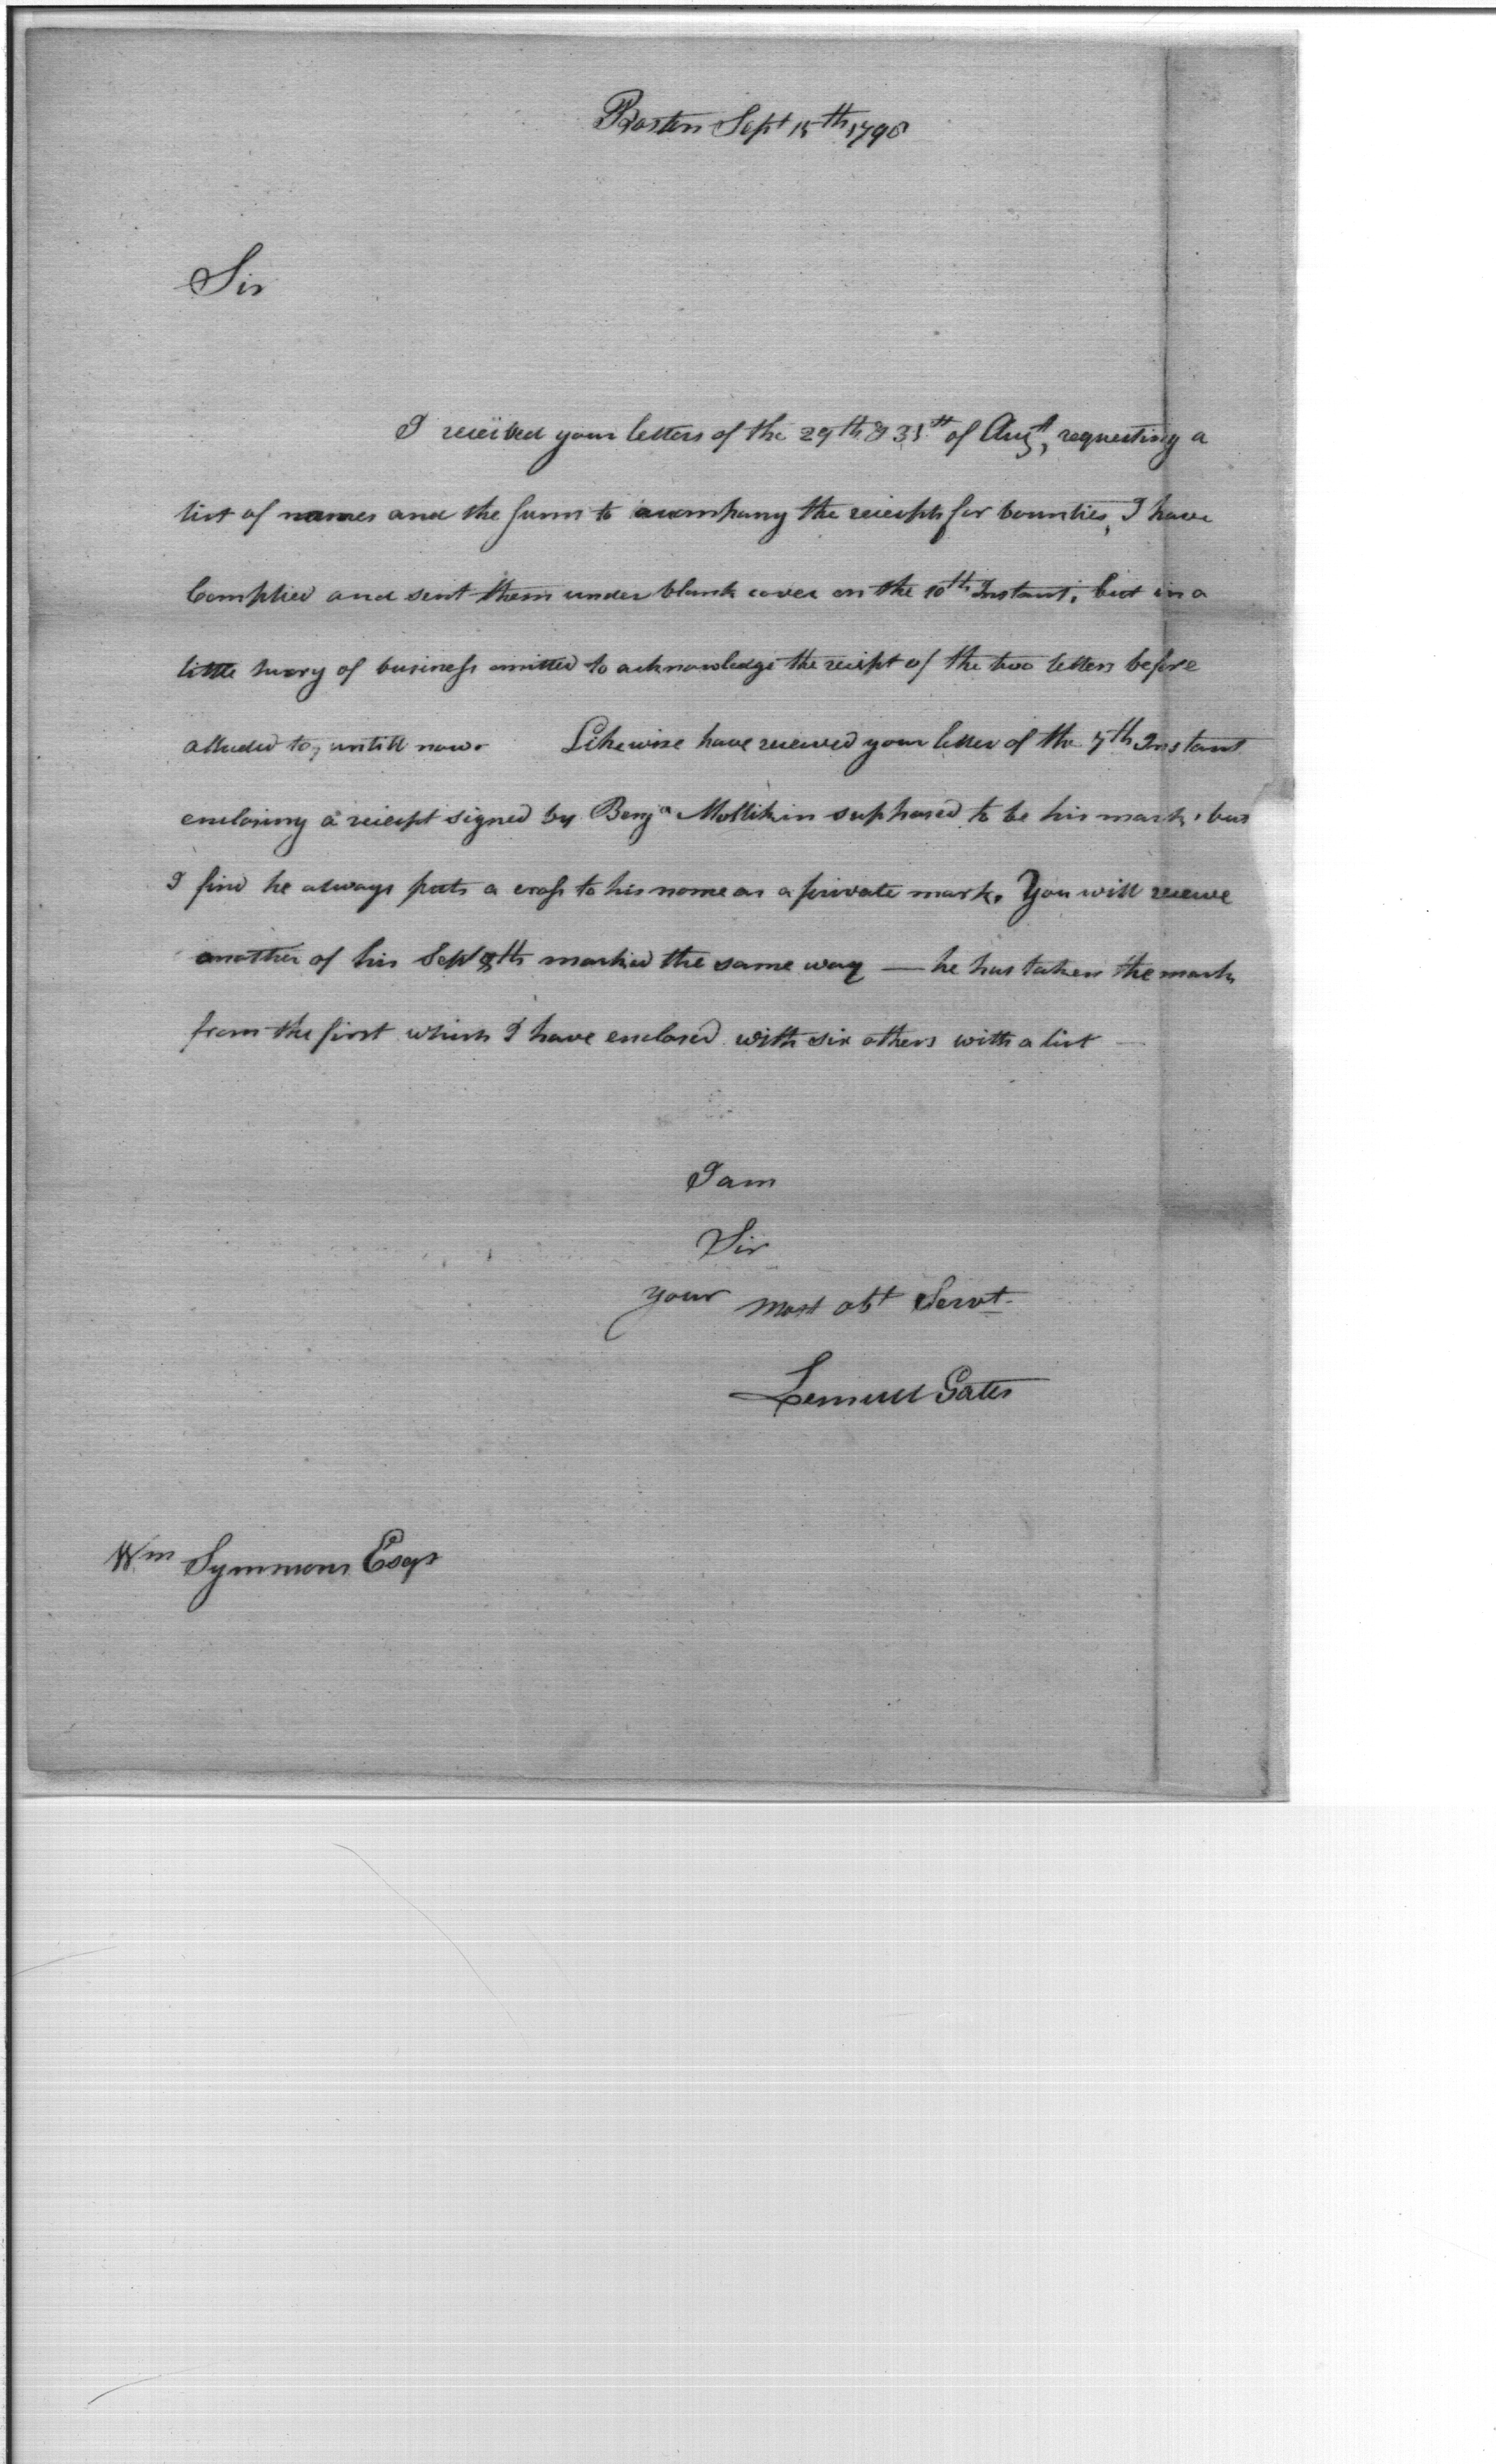 Boston Sept 15th 1798
Sir
I received your letters of the 29th & 31st of Augt, requesting a
list of names and the sums to accompany the reciepts for bounties, I have
Complied and sent them under blank cover on the 10th Instant, but in a
little hurry of business omitted to acknowledge the reciept of the two letters before
alluded to, untill now. Likewise have received your letter of the 7th Instant
enclosing a reciept signed by Benja Mollikin supposed to be his mark, but
I find he always puts a cross to his name as a private mark. You will receive
another of his Sept 8th marked the same way — he has taken the mark
from the first which I have enclosed with six others with a list —
I am
Sir
your most obt Servt
Lemuel Gates
Wm Symmons Esqr